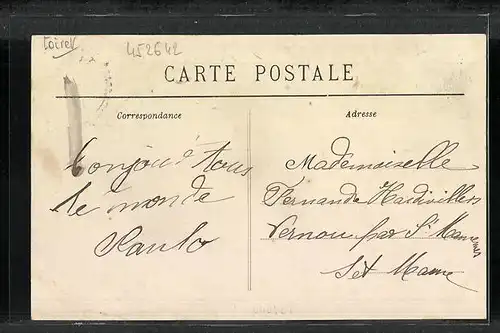 Loiret
452642
CARTE POSTALE
Correspondance
Adresse
bonjou à tous
le monde
Paulo
Mademoiselle
Fernande Hardivillers
Vernou par St Mamès
Set Marne